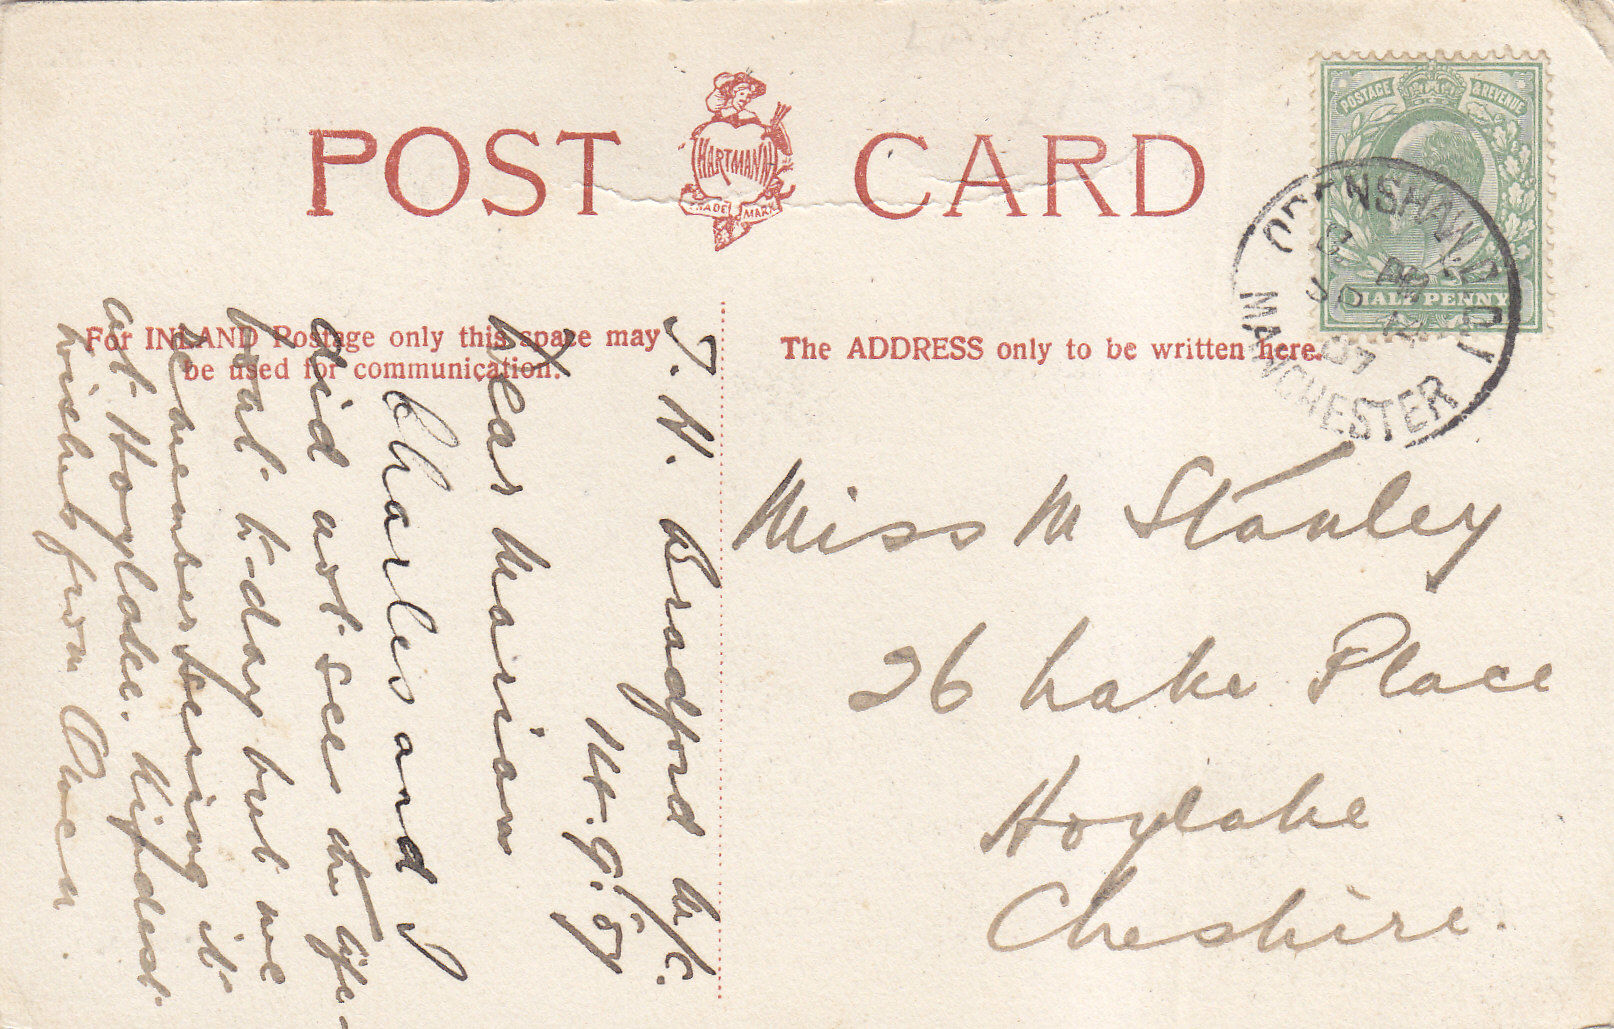 POST CARD
HARTMANN
TRADE MARK
POSTAGE & REVENUE
HALFPENNY
OPENSHAW
MANCHESTER
14
07
For INLAND Postage only this space may
be used for communication.
The ADDRESS only to be written here.
Miss M Stanley
26 Lake Place
Hoylake
Cheshire.
Bradford M/C.
14.9.'07
Dear Marion
Charles and I
did not see the life-
boat to-day but we
remember seeing it
at Hoylake. Kindest
wishes from Owen.